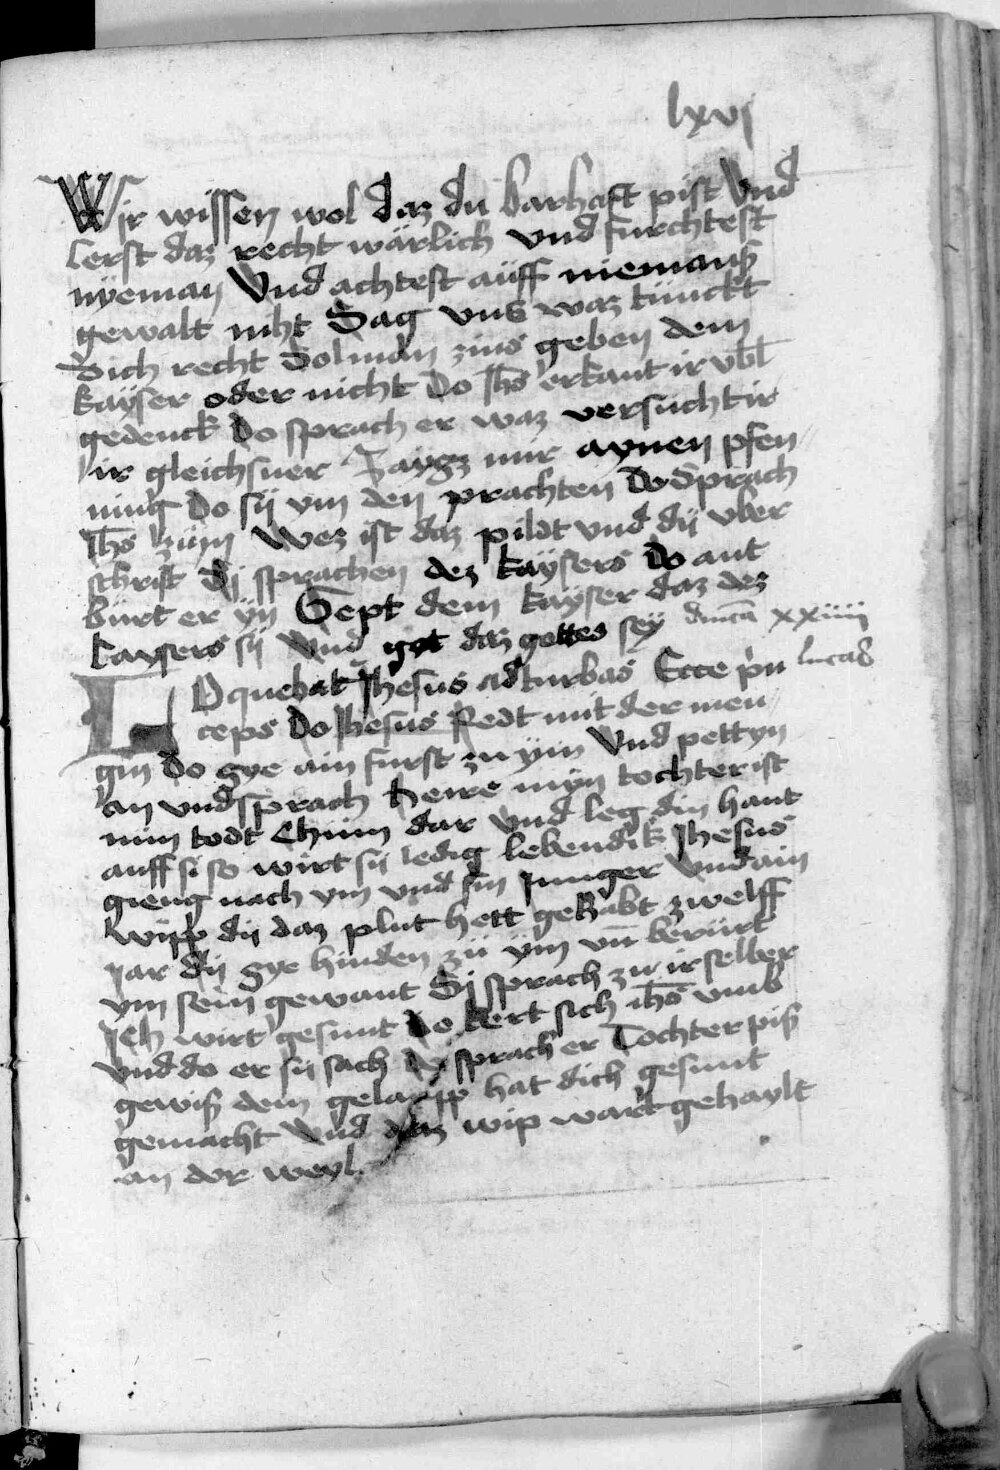 lxvj
Wir wissen wol daz du barhaft pist Vnd
lerst daz recht wärlich vnd furchtest
nÿeman Vnd achtest aüff niemanß
gewalt niht Sag vns waz tünckt
dich recht Sol man zins geben dem
kaÿser oder nicht Do jhs̄ erkant ir vbl̄
gedenck Do sprach er waz versucht ir
ir gleichsner Zaygt mir aynen pfen
ning Do sÿ ym den prachten Do Sprach
jhs̄ zü ym Wez ist daz pildt vnd dÿ vber
schrift Dj sprachen dez kaÿsers Do ant
bürt er ÿn Gept dem kaÿser daz dez
kaysers sÿ Vnd got daz gottes seÿ dnīca xxiiii
LOquebat Jhesus ad turbas Ecce pn̄ lucas
ceps Do Jhesus Redt mit der men
gin Do gye ain furst zu ÿm Vnd pett yn
an vnd sprach Herre mÿn tochter ist
nün todt Chüm dar vnd leg din hant
auff si so wirt sÿ ledig lebendik Jhesus
gieng nach ym vnd sin Junger Vnd ain
wÿpp dÿ daz plut hett gehabt zwelff
jar dÿ gye hinden zü ÿm vn̄ berürt
ym sein gewant Sj sprach zu ir selber
Jch wirt gesunt Do kert sich jhs̄ vmb
Vnd do er sÿ sach Do sprach er Tochter piß
gewiß dem gelaupp hat dich gesunt
gemacht Vnd daz wip wart gehaylt
an der weyl